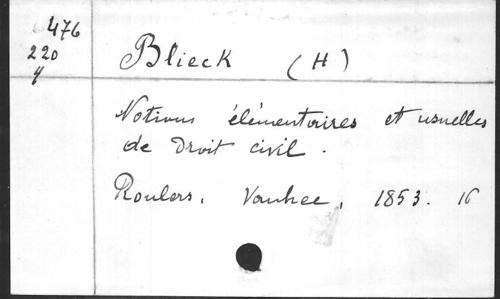 476
220
y
Blieck (H)
Notions élémentaires et usuelles
de Droit civil.
Roulers, Vanhee, 1853. 16